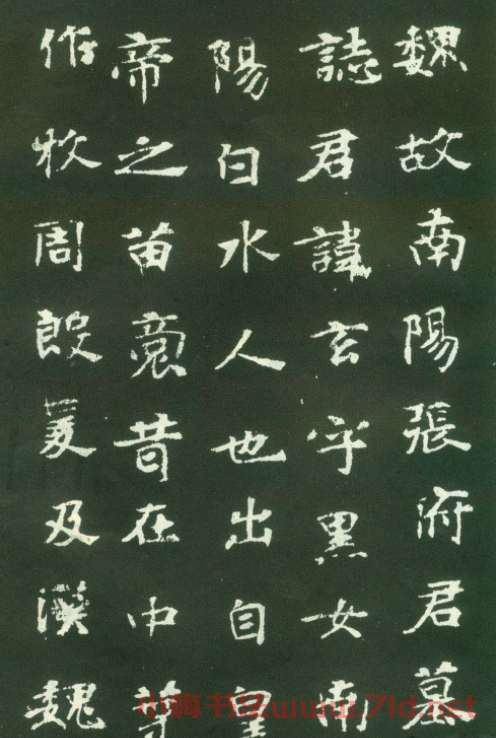 魏故南陽張府君墓
誌君諱玄字黑女南
陽白水人也出自皇
帝之苗裔昔在中葉
作牧周殷爰及漢魏
小梅书法www.7ld.net